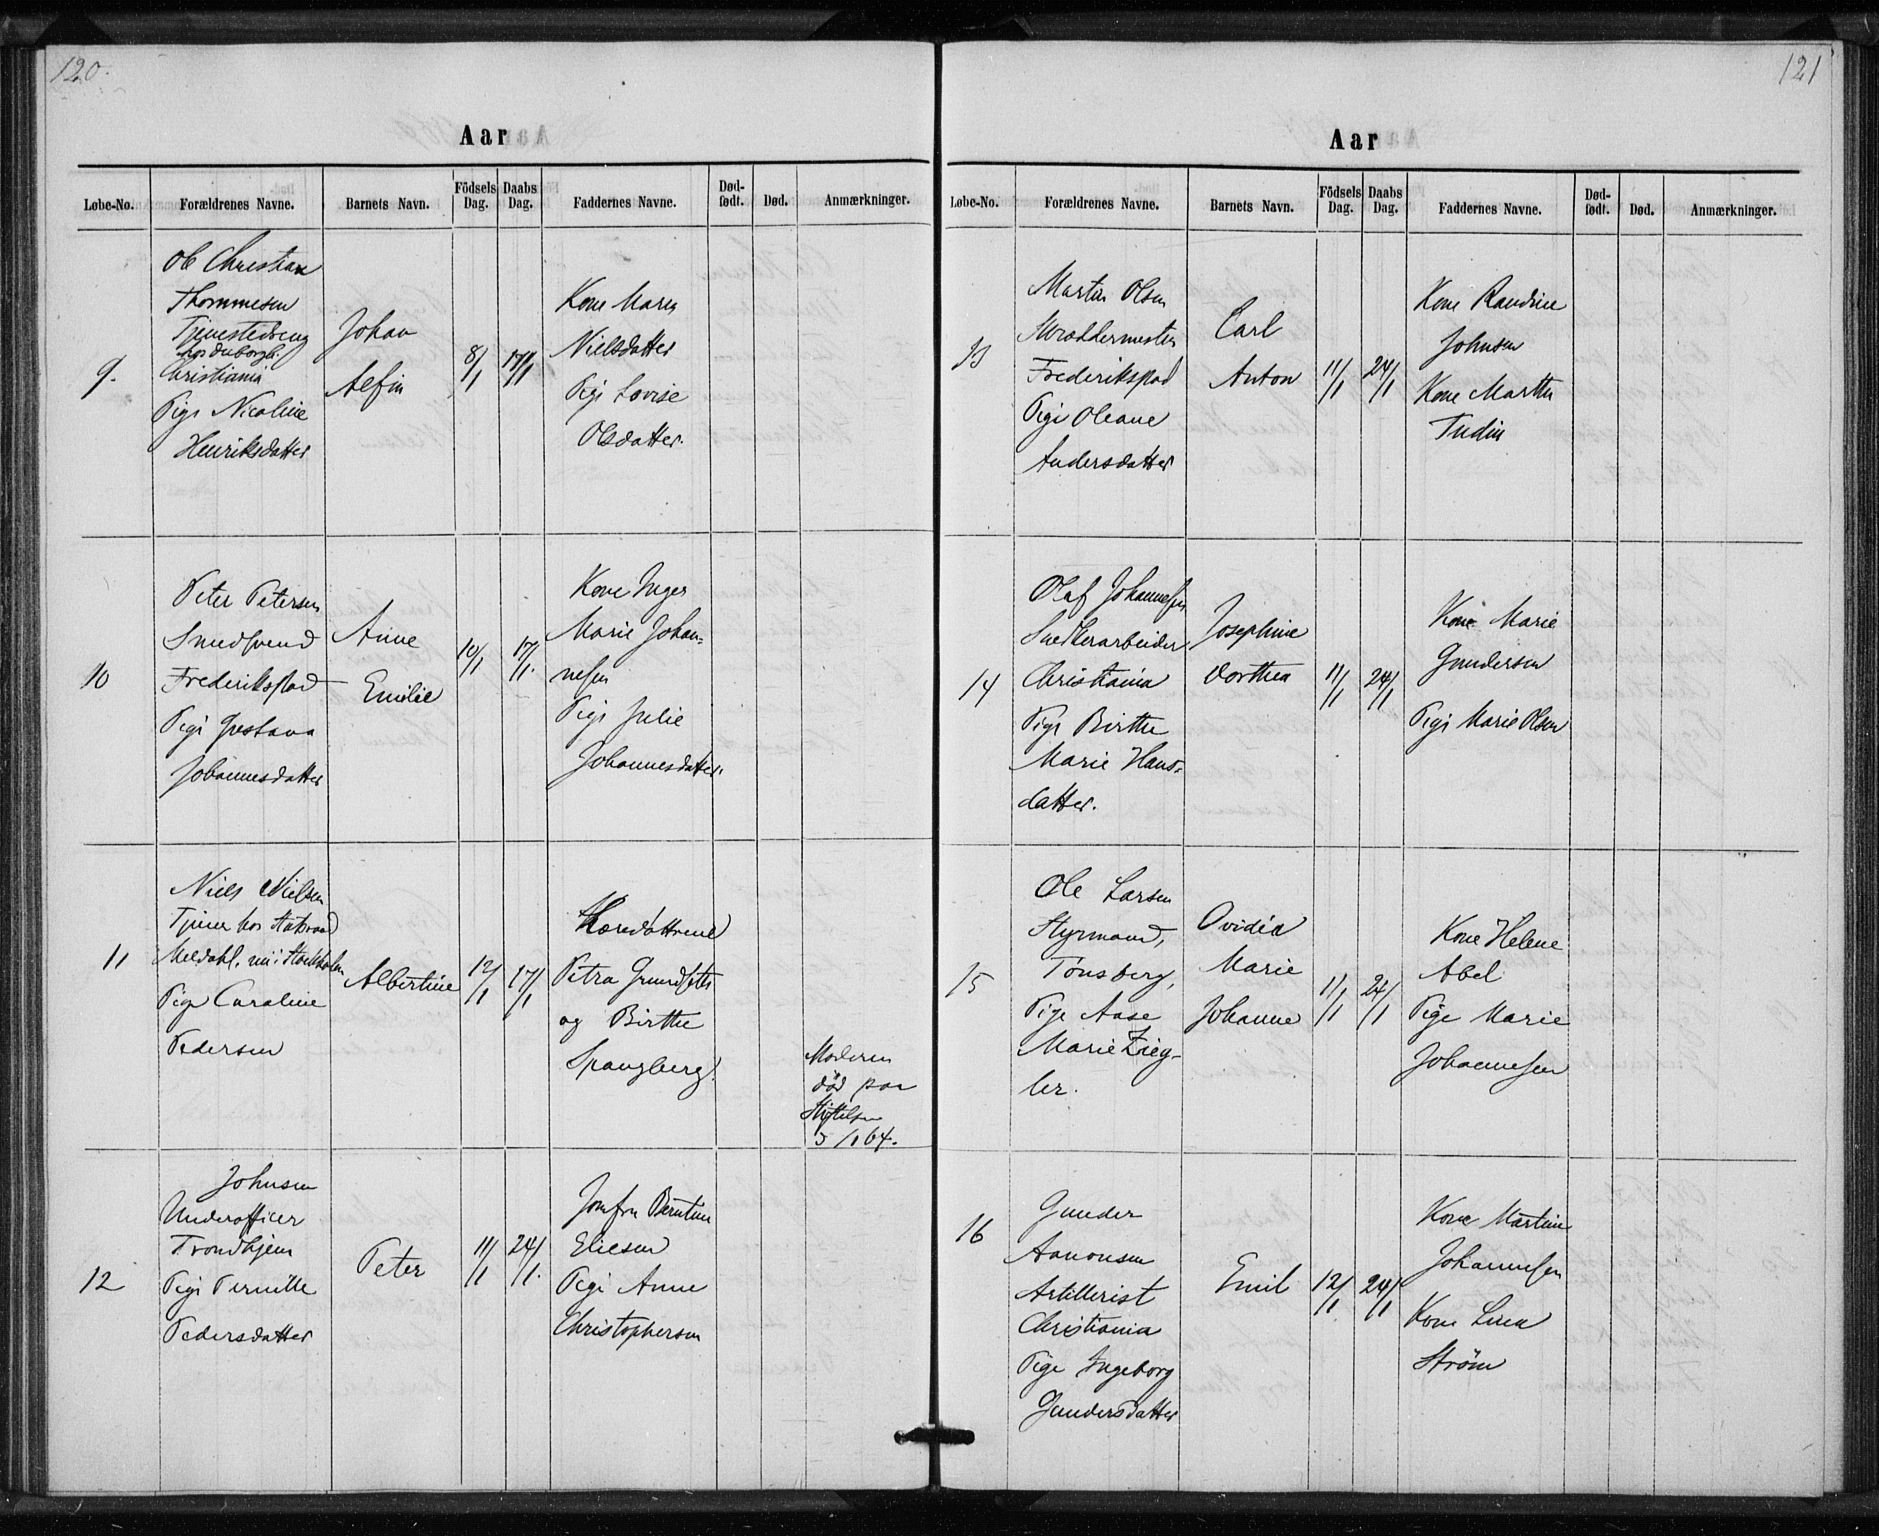 120.
Aar
Løbe-No. Forældrenes Navne. Barnets Navn. Födsels Dag. Daabs Dag. Faddernes Navne. Død-født. Død. Anmærkninger.
9.
Ole Christian
Thommesen
Tjenestedreng
Christiania
Pige Nicoline
Henriksdatter
Johan
Alfin
8/1
17/1
Kone Maria
Nielsdatter
Pige Lovise
Olsdatter.
10
Peter Petersen
Smedsvend
Frederikstad
Pige Gustava
Johannesdatter
Anne
Emilie
10/1
17/1.
Kone Inger
Marie Johan-
nesen
Pige Julie
Johannesdatter.
11
Niels Nielsen
Tjener hos Statsraad
Meldahl, nu i Stockholm
Pige Caroline
Pedersen
Albertine
12/1
17/1
Petra Grundseter
og Birthe
Spangberg.
Moderen
død paa
Stiftelsen
5/1 64.
12
Johnsen
Underofficer
Trondhjem
Pige Pernille
Pedersdatter
Peter
11/1
24/1.
Jomfru Berntine
Ellesen
Pige Anne
Christophersen
121
Aar
Løbe-No. Forældrenes Navne. Barnets Navn. Födsels Dag. Daabs Dag. Faddernes Navne. Død-født. Død. Anmærkninger.
13
Martin Olsen
Skræddermester
Frederikstad
Pige Oleane
Andersdatter
Carl
Anton
11/1
24/1
Kone Randine
Johnsen
Kone Marthe
Tudin
14
Olaf Johannesen
Snedkerarbeider
Christiania
Pige Birthe
Marie Hans-
datter.
Josephine
Dorthea
11/1
24/1
Kone Marie
Gundersen
Pige Marie Olsen
15
Ole Larsen
Styrmand,
Tønsberg,
Pige Aase
Marie Zieg-
ler.
Ovidia
Marie
Johanne
11/1
24/1
Kone Helene
Abel
Pige Marie
Johannesen
16
Gunder
Aanonsen
Artillerist
Christiania
Pige Ingeborg
Gundersdatter
Emil
12/1
24/1
Kone Martine
Johannesen
Kone Lina
Strøm